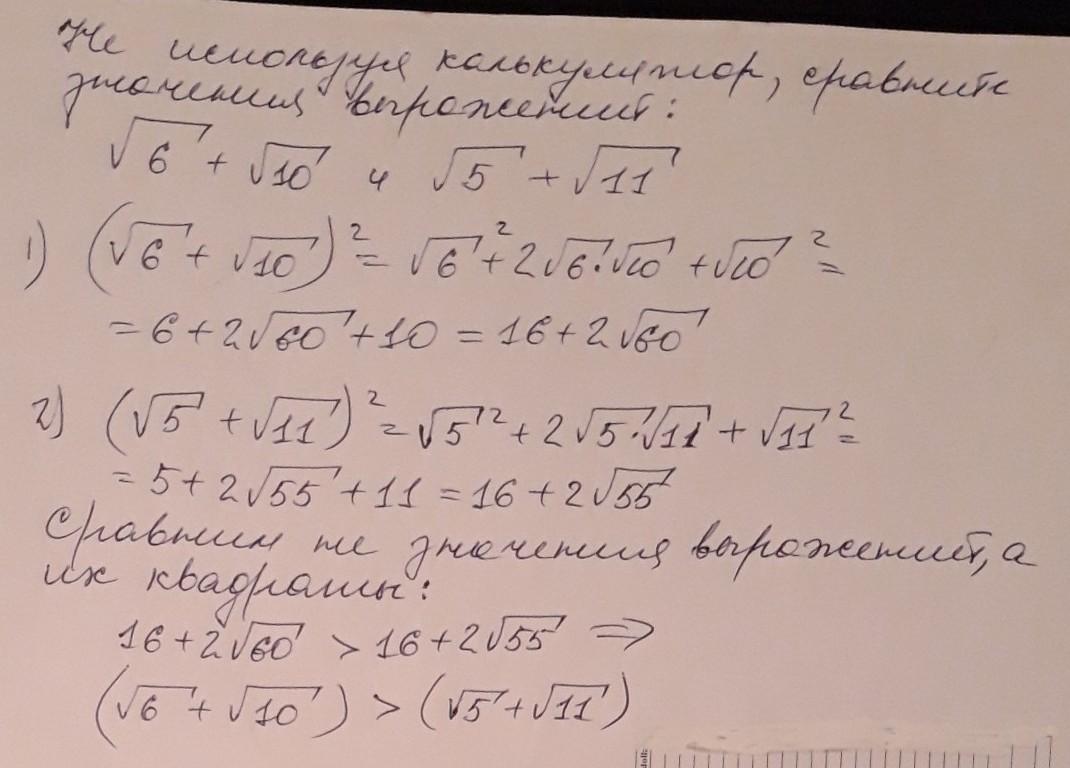 Не используя калькулятор, сравните
значения выражений:
√6 + √10 и √5 + √11
1) (√6 + √10)² = √6² + 2√6·√10 + √10² =
= 6 + 2√60 + 10 = 16 + 2√60
2) (√5 + √11)² = √5² + 2√5·√11 + √11² =
= 5 + 2√55 + 11 = 16 + 2√55
Сравним не значения выражений, а
их квадраты:
16 + 2√60 > 16 + 2√55 ⇒
(√6 + √10) > (√5 + √11)